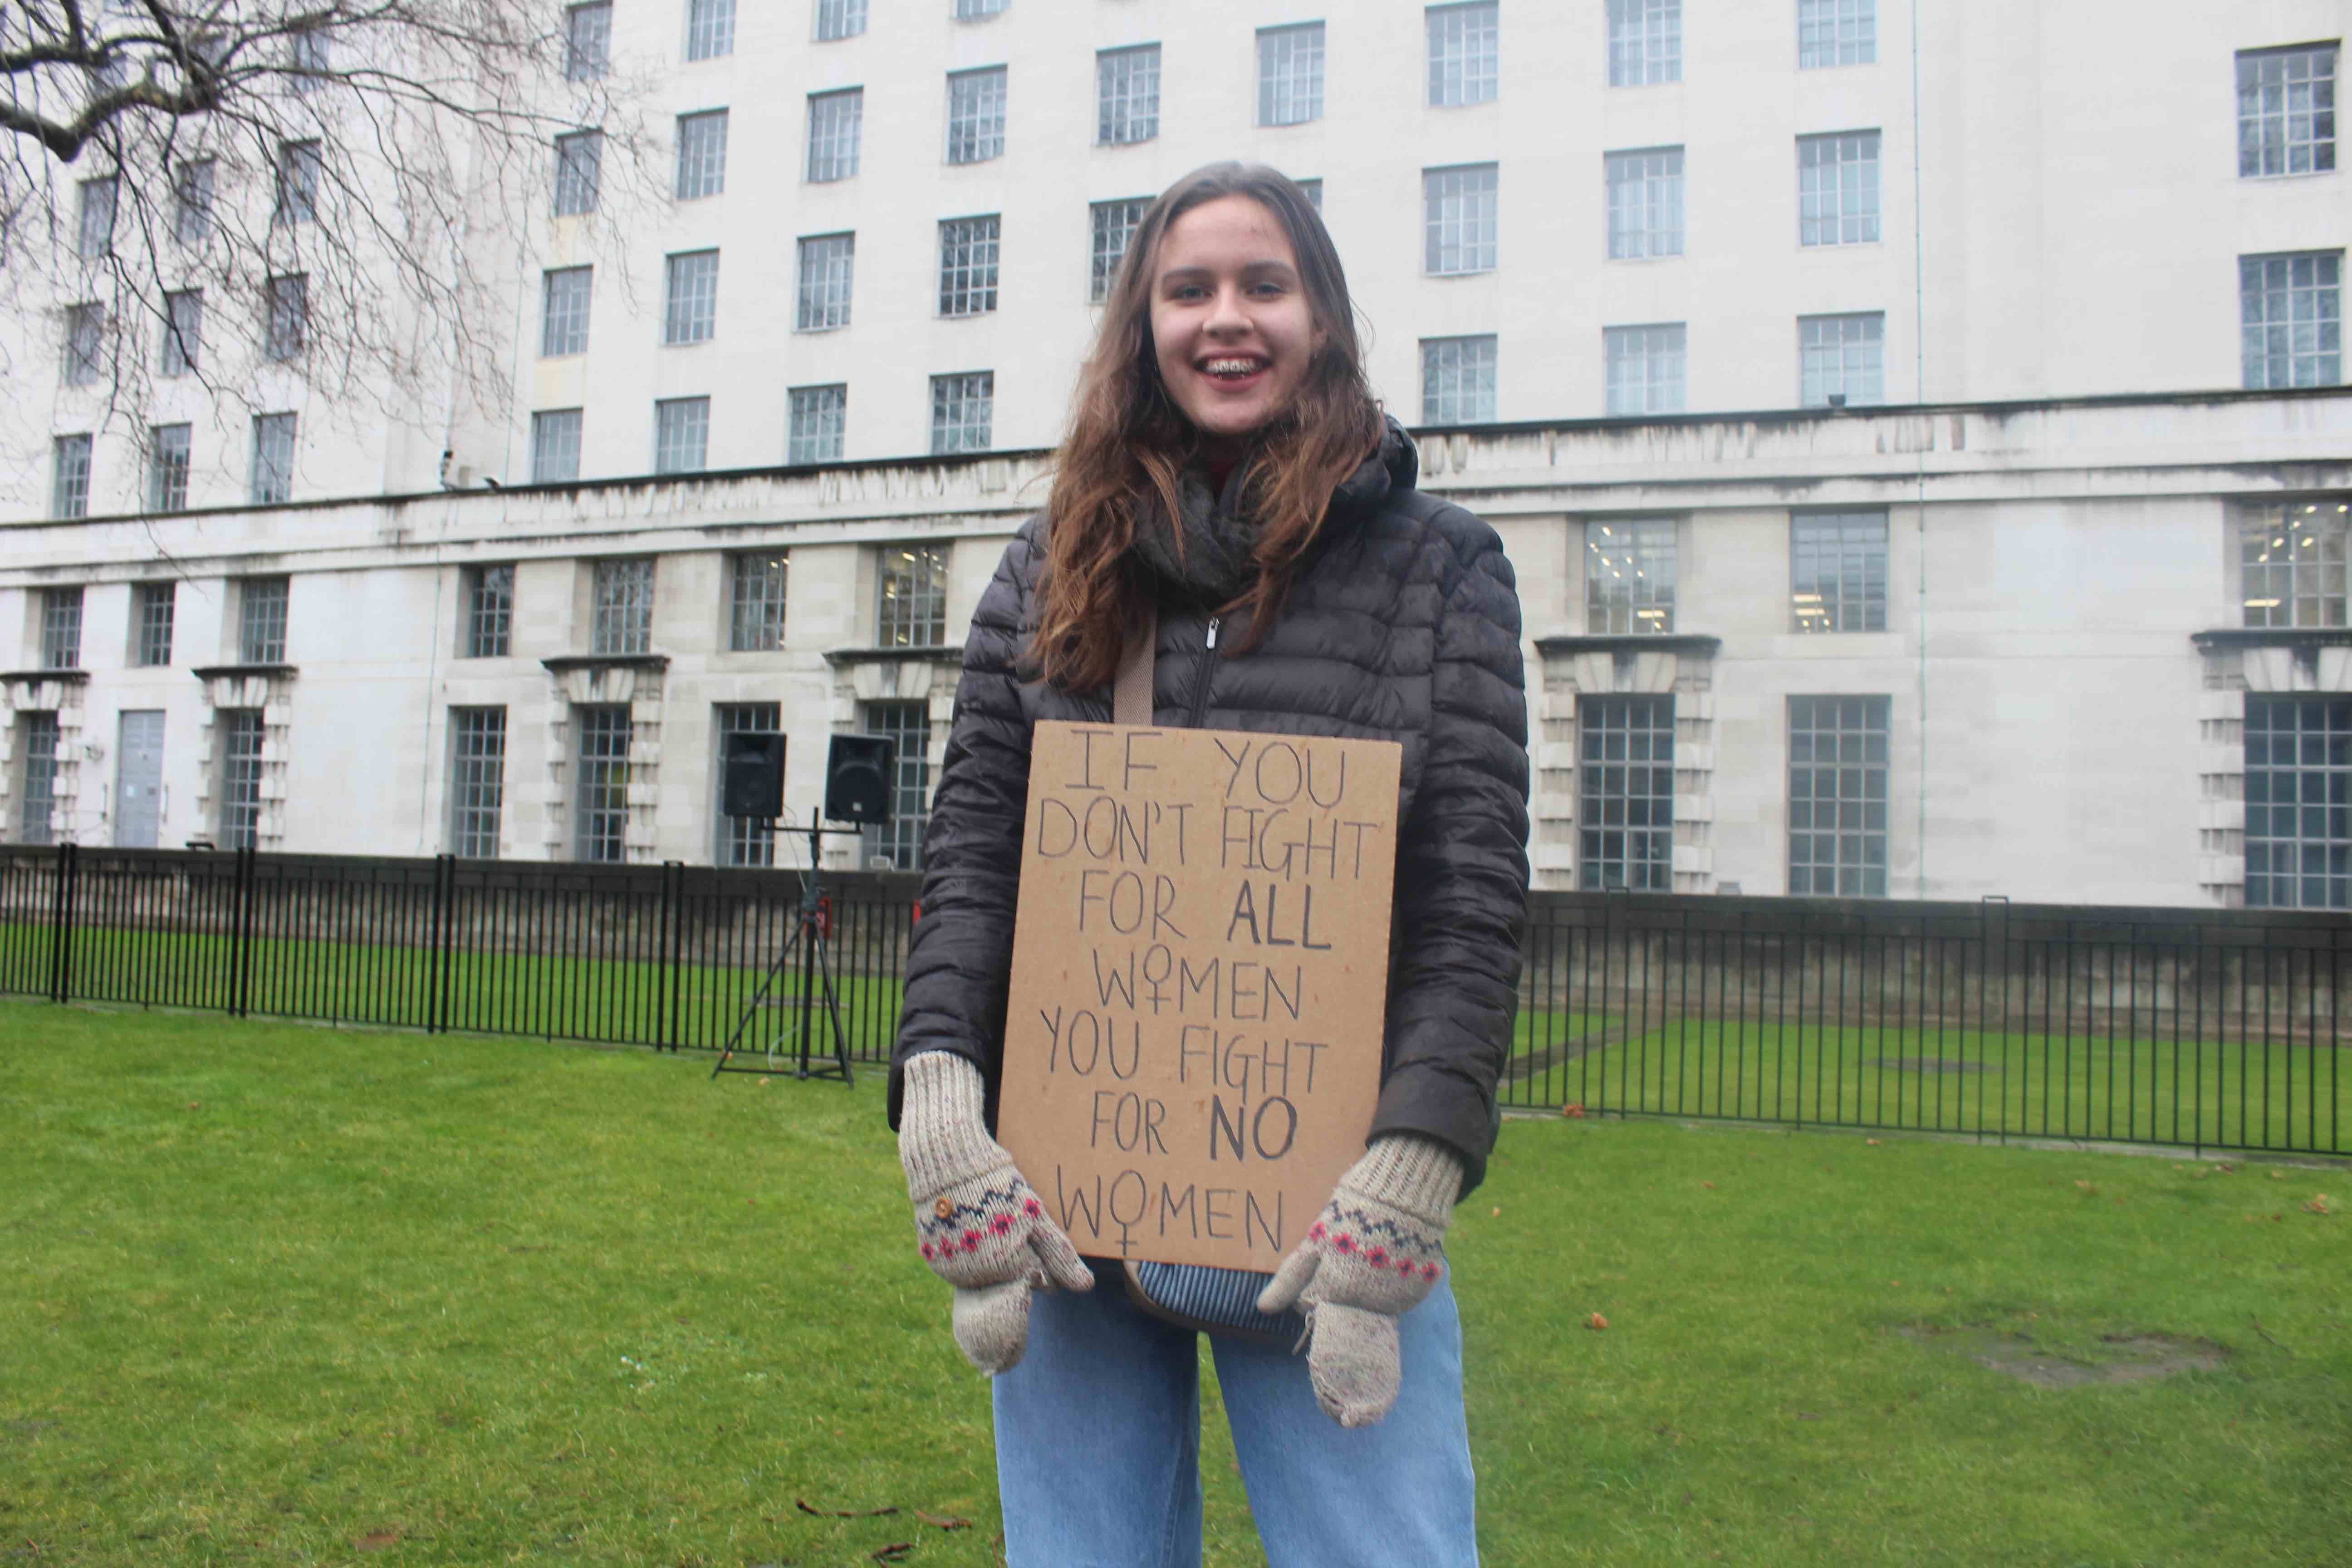 IF YOU
DON'T FIGHT
FOR ALL
W♀MEN
YOU FIGHT
FOR NO
W♀MEN